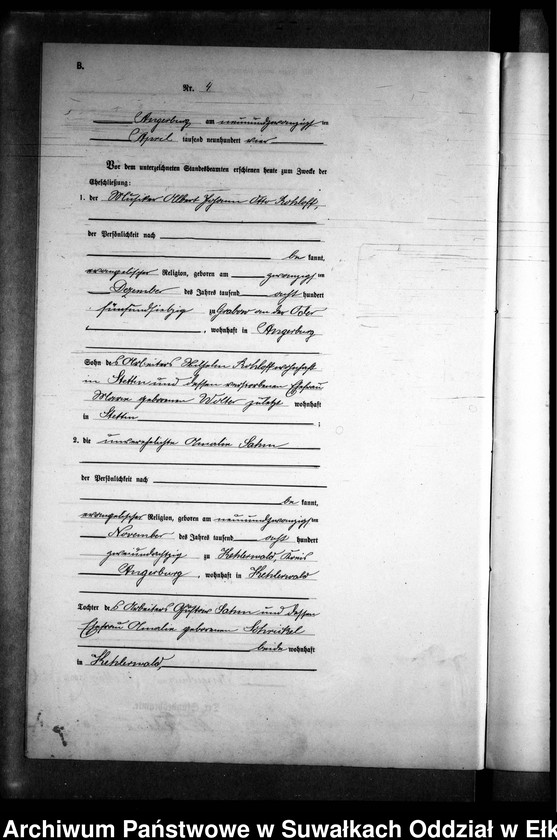 B.
Nr. 4
Angerburg am neunundzwanzigsten
April tausend neunhundert vier
Vor dem unterzeichneten Standesbeamten erschienen heute zum Zwecke der
Eheschließung:
1. der Musiker Albert Johann Otto Rohloff,
der Persönlichkeit nach
be kannt,
evangelischer Religion, geboren am zwanzigsten
Dezember des Jahres tausend acht hundert
fünfundsiebzig zu Grabow an der Oder
, wohnhaft in Angerburg
Sohn des Arbeiters Wilhelm Rohloff wohnhaft
in Stettin und dessen verstorbenen Ehefrau
Marie geborenen Wolter zuletzt wohnhaft
in Stettin ;
2. die unverehelichte Amalie
der Persönlichkeit nach
be kannt,
evangelischer Religion, geboren am neunundzwanzigsten
November des Jahres tausend acht hundert
zweiundachtzig zu Kehlerwald, Kreis
Angerburg, wohnhaft in Kehlerwald
Tochter des Arbeiters Gustav und dessen
Ehefrau Amalie geborenen
beide wohnhaft
in Kehlerwald
Archiwum Państwowe w Suwałkach Oddział w Ełk